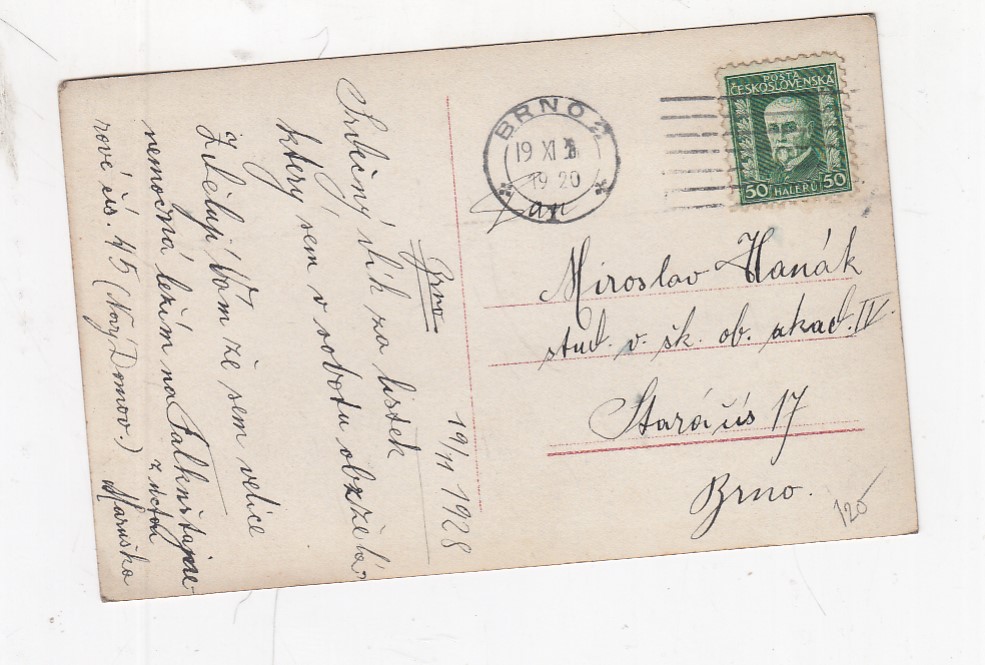 Brno 19/11 1928
Srdečný dík za lístek
který sem v sobotu obržela
Zděluji Vám že sem velice
nemocná ležím na
rové čís. 45 (Nový Domov.)
z úctou
Maruška
POŠTA
ČESKOSLOVENSKÁ
50 HALÉŘŮ 50
BRNO 2
19 XI
19 20
Pan
Miroslav Hanák
stud. v. šk. ob. akad. IV.
Stará čís 17
Brno.
120